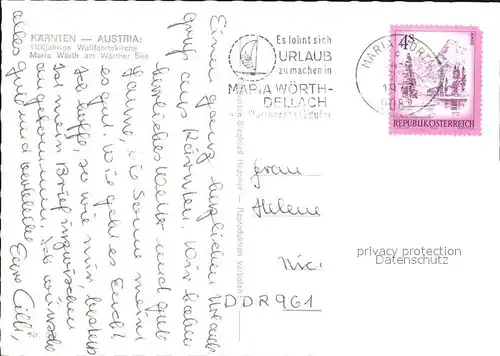 KÄRNTEN — AUSTRIA:
1100jährige Wallfahrtskirche
Maria Wörth am Wörther See
Es lohnt sich
URLAUB
zu machen in
MARIA WÖRTH-
DELLACH
MARIA WÖRTH
9082
4 S
REPUBLIK ÖSTERREICH
Einen ganz herzlichen Urlaubs
gruß aus Kärnten. Wir haben
herrliches Wetter und gute
Laune, die Sonne meint
es gut. Wie geht es Euch?
Ich hoffe, so wie mir, bestens
Ist mein Brief inzwischen
angekommen. Ich wünsche
alles Gute und verbleibe
Eure Cilli
Frau
Helene
DDR 961
privacy protection
Datenschutz